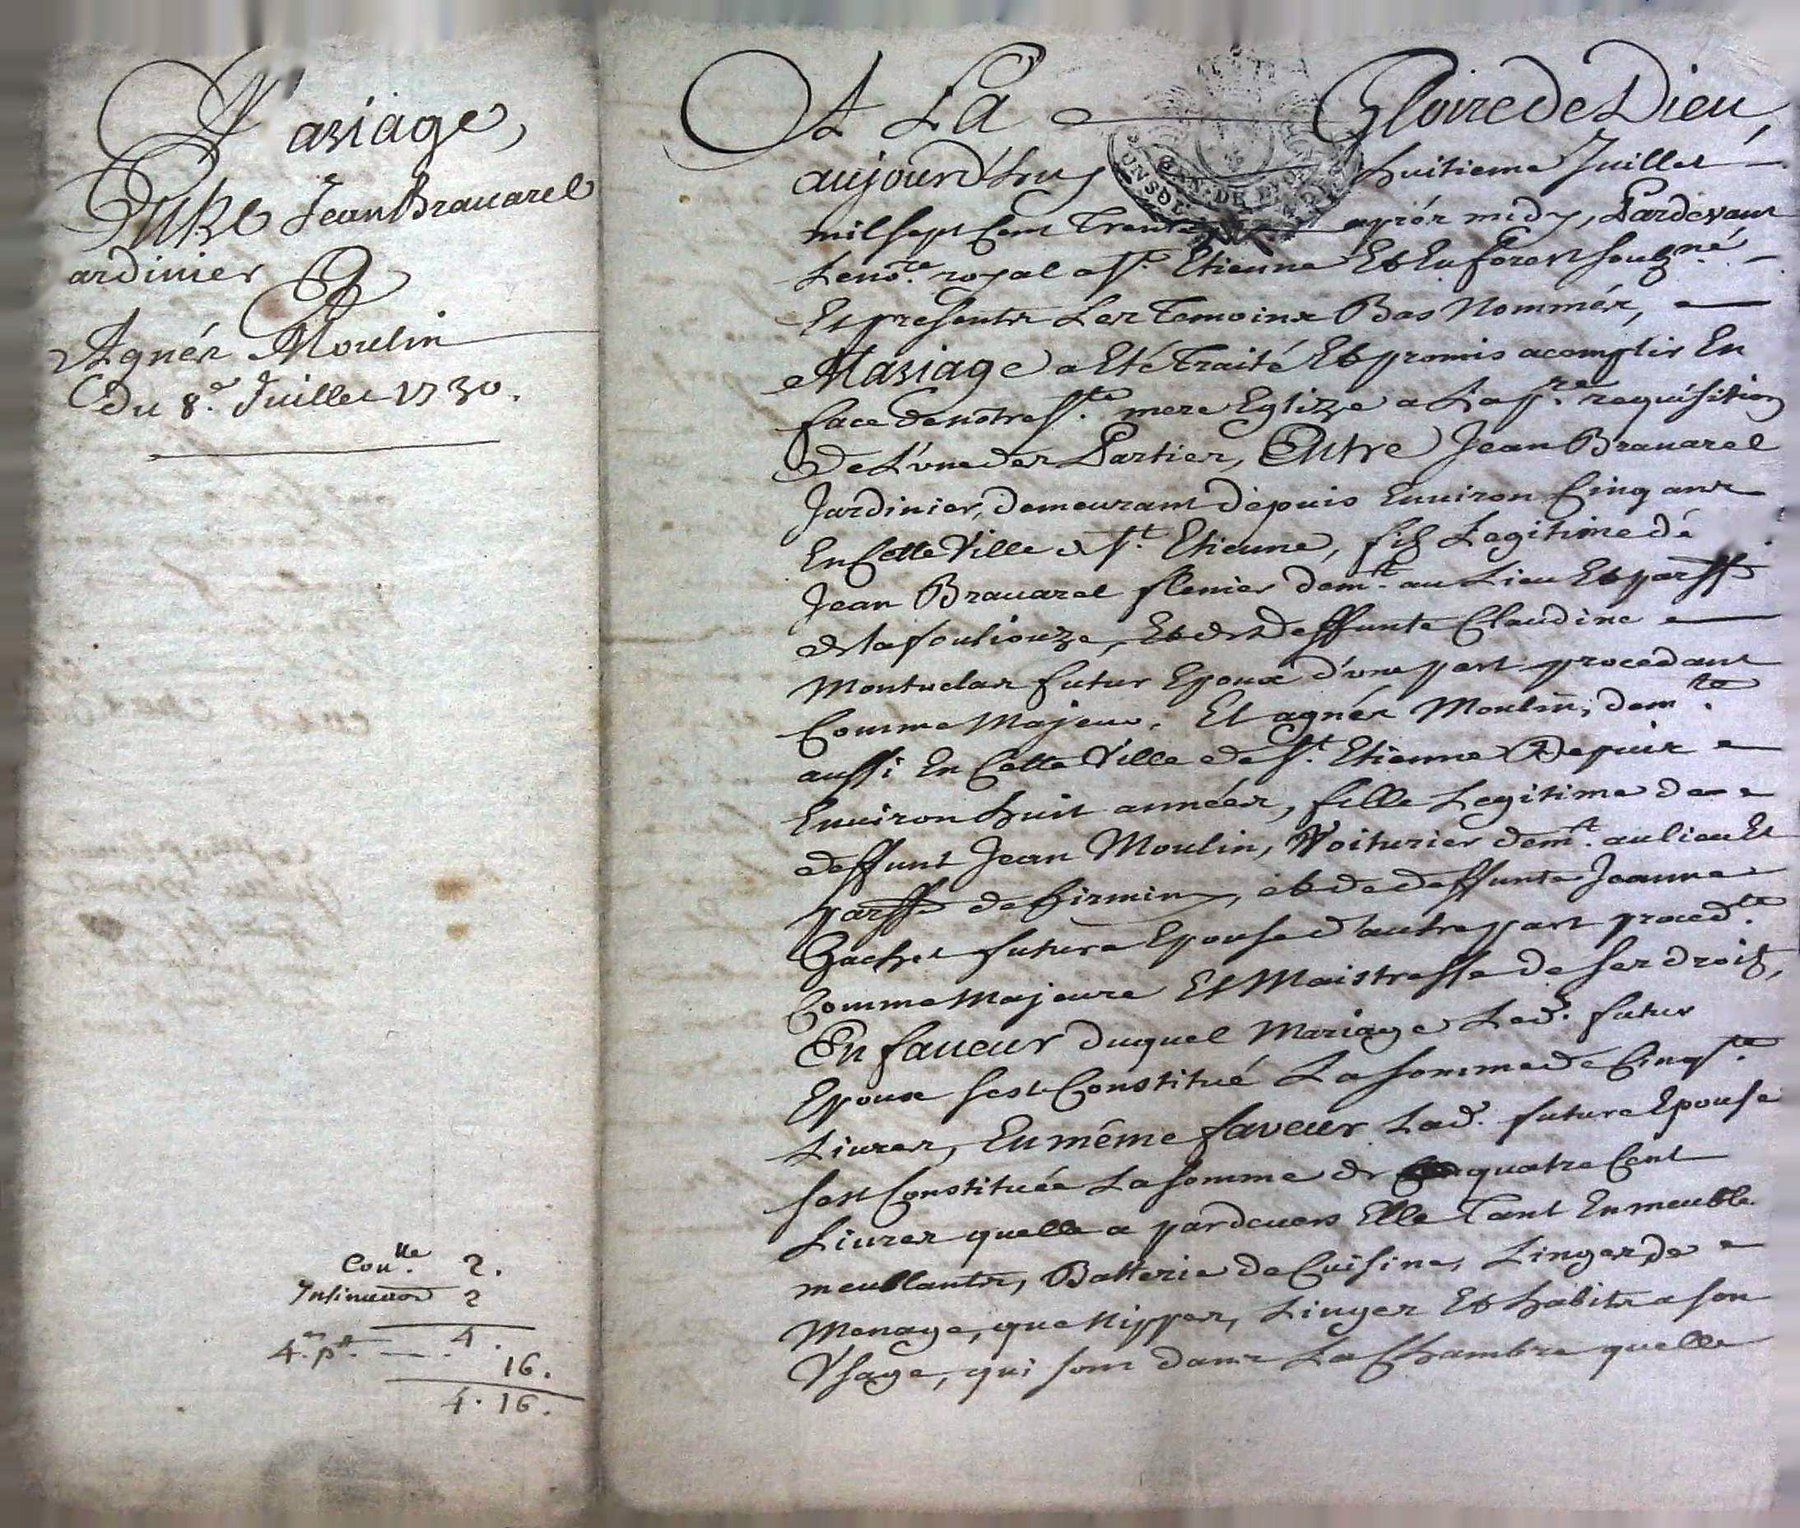 Mariage,
Entre Jean Bravarel
ardinier &
Agnés Moulin
Du 8.e Juillet 1730.
Con.lle 2.
Insinuaon 2
4.
4.en p.r 16.
4. 16.
A La Gloire de Dieu,
aujourd'huy huitieme Juillet
mil sept Cent Trente aprés midy, Pardevant
Le no.re royal a S.t Etienne Et En forest soubz.né
Et presents Les Temoins Bas Nommés,
Mariage a Eté Traité Et promis acomplir En
face de notre S.te mere Eglize a La p.re requisition
De L'une des Parties, Entre Jean Bravarel
Jardinier, demeurant depuis Environ Cinq ans
En Cette Ville de S.t Etienne, fils Legitime de
Jean Bravarel demt. au Lieu Et parsse
de la fouliouze, Et de deffunte Claudine
Montuclar futur Epoux d'une part procedant
Comme Majeur. Et agnés Moulin, dem.te
aussi En Cette Ville de S.t Etienne Depuis
Environ huit années, fille Legitime de
deffunt Jean Moulin, Voiturier demt. au lieu Et
parsse de firminy, et de deffunte Jeanne
Gachet future Epouse d'autre part proced.te
Comme Majeure Et Maistresse de ses droits,
En faveur duquel Mariage Led. futur
Epoux s'est Constitué La somme de Cinq
Livres, En même faveur Lad. future Epouse
s'est Constituée La somme de quatre Cent
Livres quelle a pardevers Elle Tant En meuble
meublants, Batterie de Cuisine, Linges de
Menage, que Nippes, Linges Et habits a son
Usage, qui sont dans La Chambre quelle